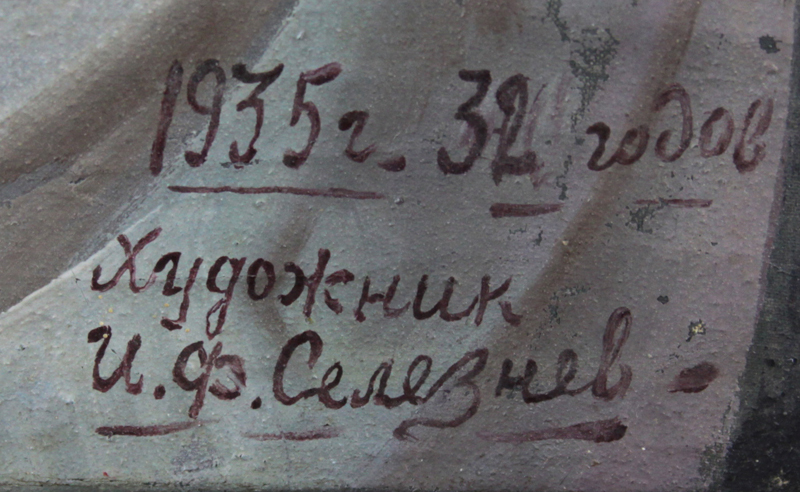 1935г. 32 годов
Художник
И.Ф. Селезнев